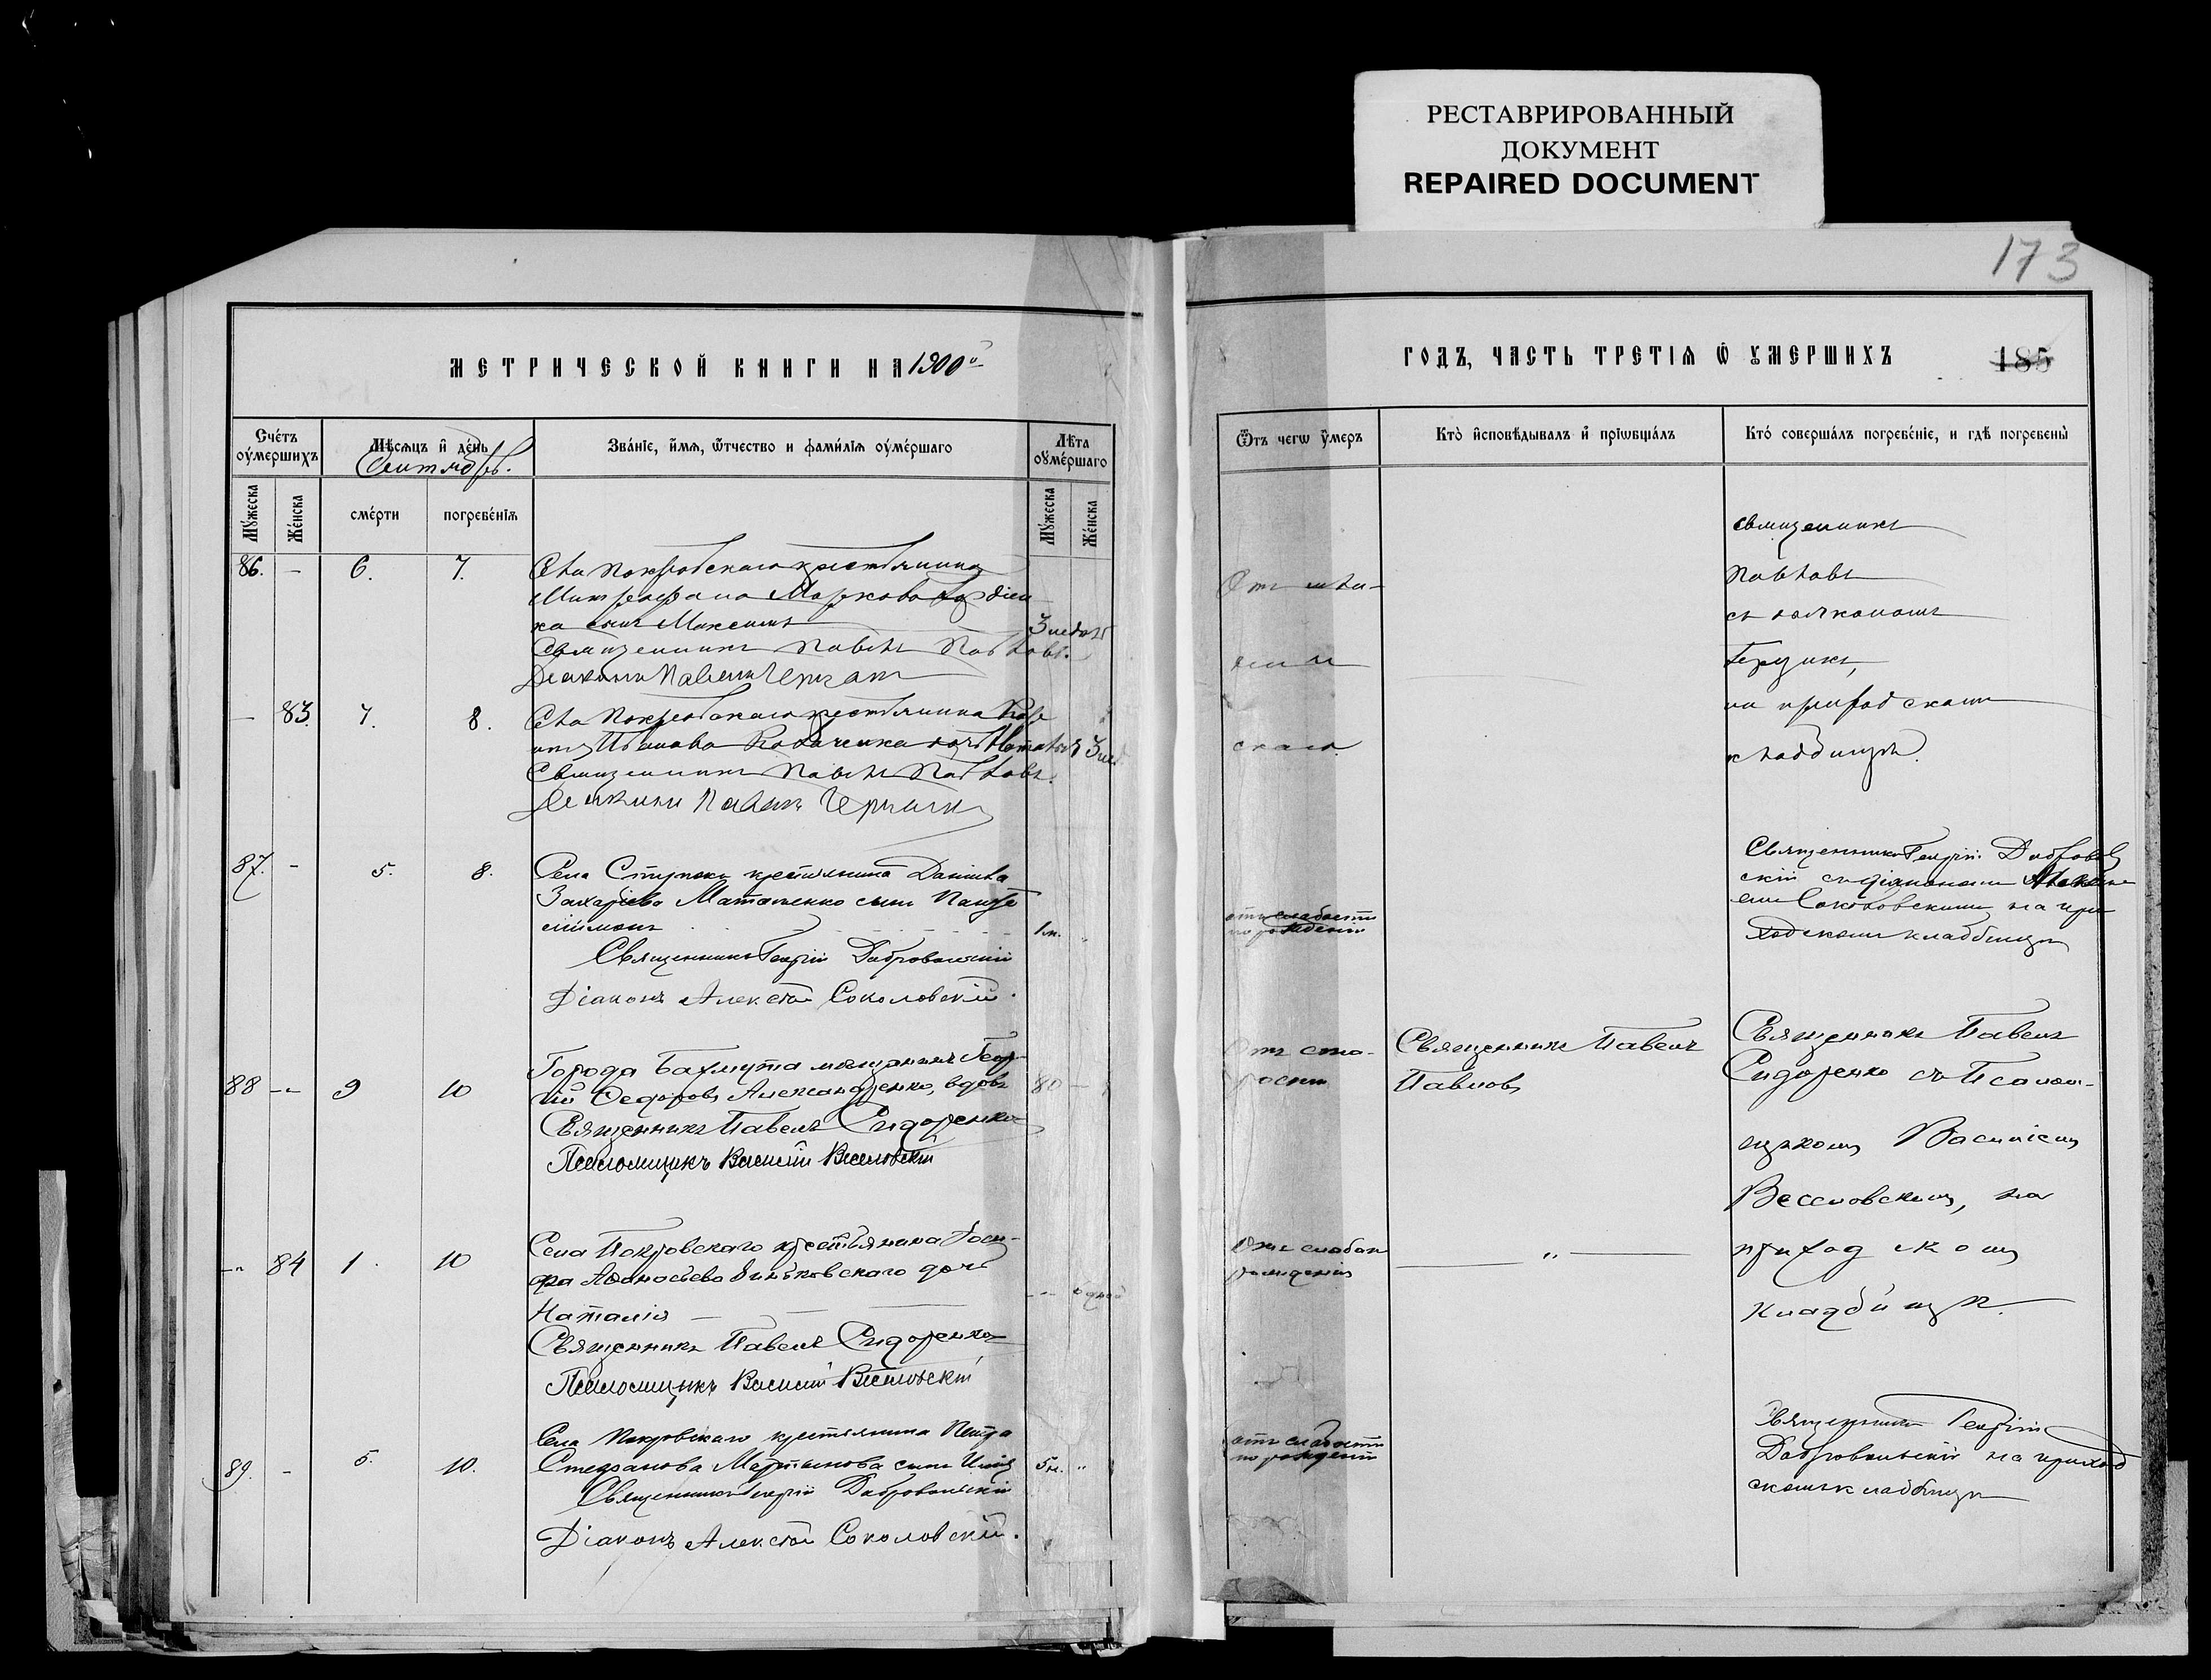 РЕСТАВРИРОВАННЫЙ
ДОКУМЕНТ
REPAIRED DOCUMENT
173
МЕТРИЧЕСКОЙ КНИГИ НА 1900й
ГОДЪ, ЧАСТЬ ТРЕТІѦ Ѡ ОУМЕРШИХЪ
185
Сче́тъ оу҆ме́ршихъ
Мѣ́сѧцъ и҆ де́нь
Сентябрь.
Зва́нїе, и҆́мѧ, ѻ҆́тчество и фами́лїѧ оу҆ме́ршаго
Лѣ́та оу҆ме́ршаго
Ѿ чегѡ̀ оу҆́меръ
Кто̀ и҆сповѣ́дывалъ и҆ прїѡбща́лъ
Кто́ соверша́лъ погребе́нїе, и гдѣ̀ погребены̀
Мꙋ́жеска
Же́нска
сме́рти
погребе́нїѧ
Мꙋ́жеска
Же́нска
86. - 6. 7.
Села Покровскаго крестьянина
Митрофана Маркова
ка сынъ Максимъ
3 недѣл
Священникъ Павелъ Павловъ.
Діаконъ Павелъ
священникъ
Павловъ
съ діакономъ
на приходскомъ
кладбищѣ.
- 83. 7. 8.
Села Покровскаго крестьянина
Иванова Коваченка дочь Наталія 3 нед.
Священникъ Павелъ Павловъ.
Діаконъ Павелъ
87. - 5. 8.
Села Ступокъ крестьянина Даніила
Захаріева Матвіенко сынъ Панте
леймонъ
1 м.
Священникъ Георгій Добровольскій
Діаконъ Алексѣй Соколовскій.
отъ слабости
по рожденію
Священникъ Георгій Добровол
скій съ діакономъ Алексѣ
емъ Соколовскимъ на при
ходскомъ кладбищѣ
88 -"- 9 10
Города Бахмута мѣщанинъ Геор-
гій Ѳедоровъ Александренко, вдов
80 -
Священникъ Павелъ Сидоренко
Псаломщикъ Василій Веселовскій
Отъ ста-
рости
Священникъ Павелъ
Павловъ
Священникъ Павелъ
Сидоренко съ Псалом-
щикомъ Василіемъ
Веселовскимъ, на
приходскомъ
кладбищѣ.
-"- 84 1. 10
Села Покровскаго крестьянина
Аѳанасьева дочь
Наталія
Священникъ Павелъ Сидоренко
Псаломщикъ Василій Веселовскій
Отъ слабаго
рожденія
"
89. - 5. 10.
Села Покровскаго крестьянина Петра
Стефанова Мартынова сынъ Илія
5 м. "
Священникъ Георгій Добровольскій
Діаконъ Алексѣй Соколовскій.
отъ слабости
по рожденію
Священникъ Георгій
Добровольскій на приход
скомъ кладбищѣ